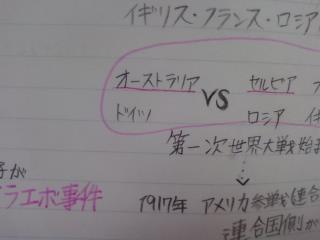 イギリス・フランス・ロシア
オーストラリア VS セルビア
ドイツ ロシア イギ
第一次世界大戦始ま
子が
ラエボ事件
1917年 アメリカ参戦(連合
連合国側が